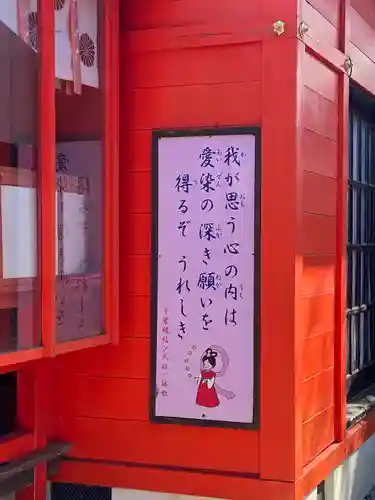 我が思う心の内は
愛染の深き願いを
得るぞ うれしき